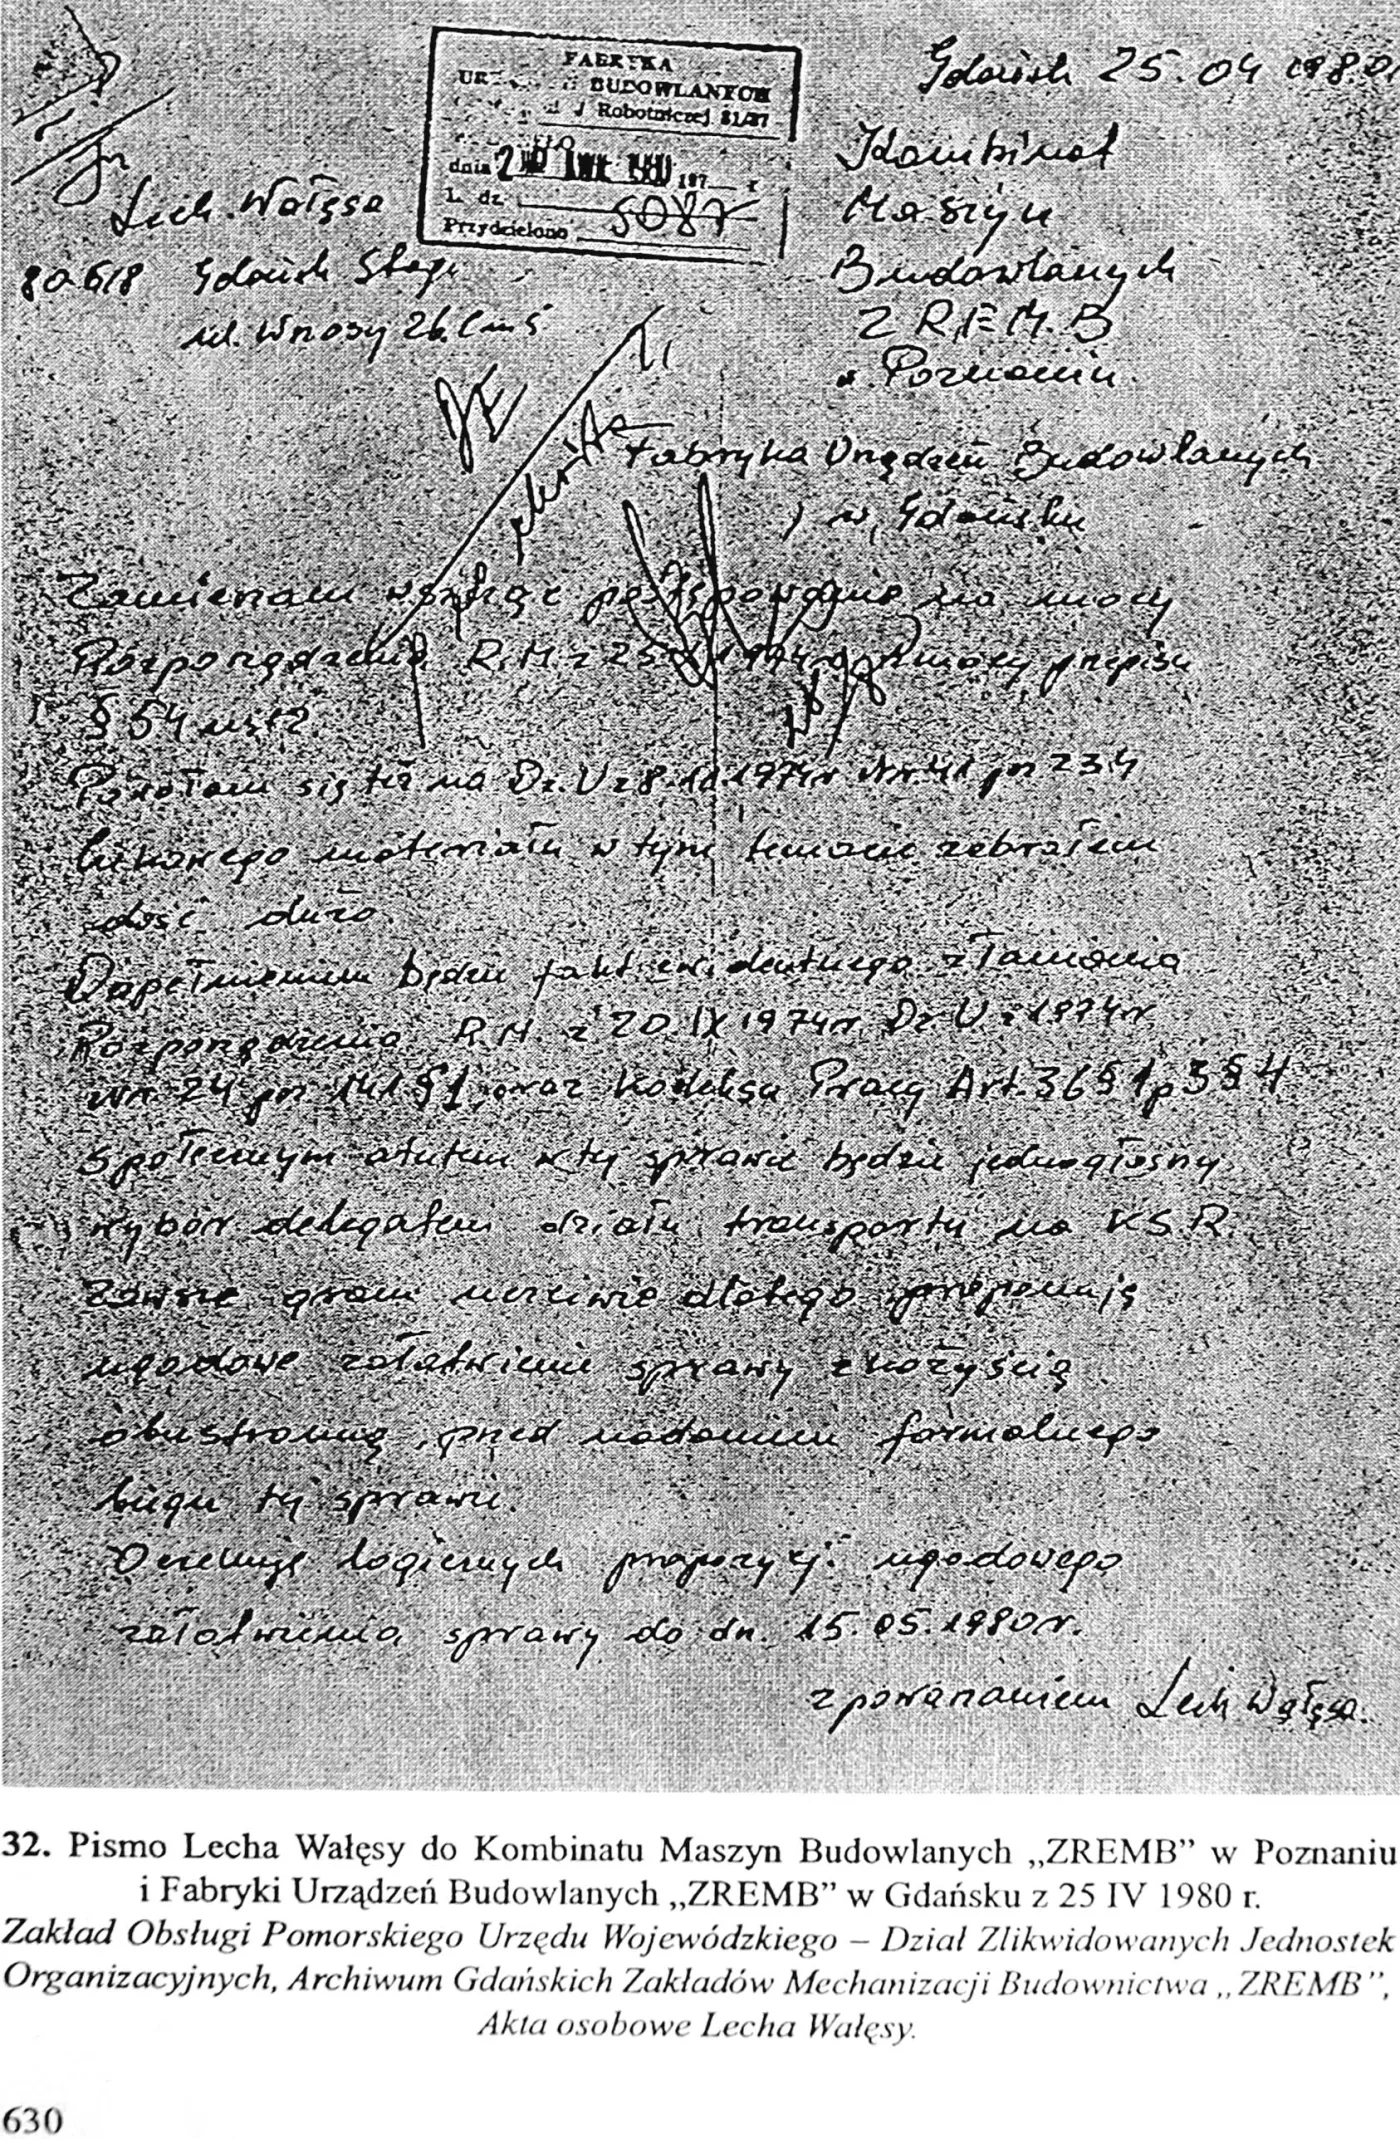 Gdańsk 25.04 1980
FABRYKA
BUDOWLANYCH
Robotniczej 81/87
dnia 197 r
L. dz. 5087
Przydzielono
Lech Wałęsa
80618 Gdańsk Stogi
ul. Wrzosy 26c m 5
Kombinat
Maszyn
Budowlanych
ZREMB
w Poznaniu
Fabryka Urządzeń Budowlanych
w Gdańsku
Zamierzam wszcząć postępowanie na mocy
Rozporządzenia R.M. z 1974 r mocy przepisu
§ 54 ust 2.
Powołam się też na Dz. U z 8. 1974r Nr 41 pn 234
materiału w tym temacie zebrałem
dość dużo.
Dopełnieniem będzie fakt ewidentnego złamania
Rozporządzenia R.M. z 20.IX 1974r. Dz U. z 1974r
nr 24 pn 141 § 1, oraz Kodeksu Pracy Art. 36 § 1 p 3 § 4
Społecznym atutem w tej sprawie będzie jednogłośny
wybór delegatem działu transportu na KS.R.
Zawsze gram uczciwie dlatego proponuję
ugodowe załatwienie sprawy z kożyścią
obustronną, przed nadaniem formalnego
biegu tej sprawie.
Oczekuję logicznych propozycji ugodowego
załatwienia sprawy do dn. 15.05.1980r.
z poważaniem Lech Wałęsa.
32. Pismo Lecha Wałęsy do Kombinatu Maszyn Budowlanych „ZREMB” w Poznaniu
i Fabryki Urządzeń Budowlanych „ZREMB” w Gdańsku z 25 IV 1980 r.
Zakład Obsługi Pomorskiego Urzędu Wojewódzkiego – Dział Zlikwidowanych Jednostek
Organizacyjnych, Archiwum Gdańskich Zakładów Mechanizacji Budownictwa „ZREMB”,
Akta osobowe Lecha Wałęsy.
630